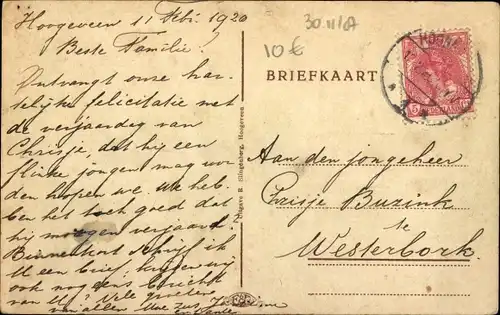 Hoogeveen 11 Febr. 1920
Beste Familie!
Ontvangt onze har-
telijke felicitatie met
de verjaardag van
Chrisje, dat hij een
flinke jongen mag wor-
den hopen we. We heb-
ben het toch goed dat
hij morgen verjaard.
Binnenkort schrijf ik
U een brief, krijgen wij
ook nog eens bericht
van U? Vele groeten
van allen
30
10 €
BRIEFKAART
Uitgave R. Slingenberg, Hoogeveen
Aan den jongeheer
Chrisje Buzink
te
Westerbork.